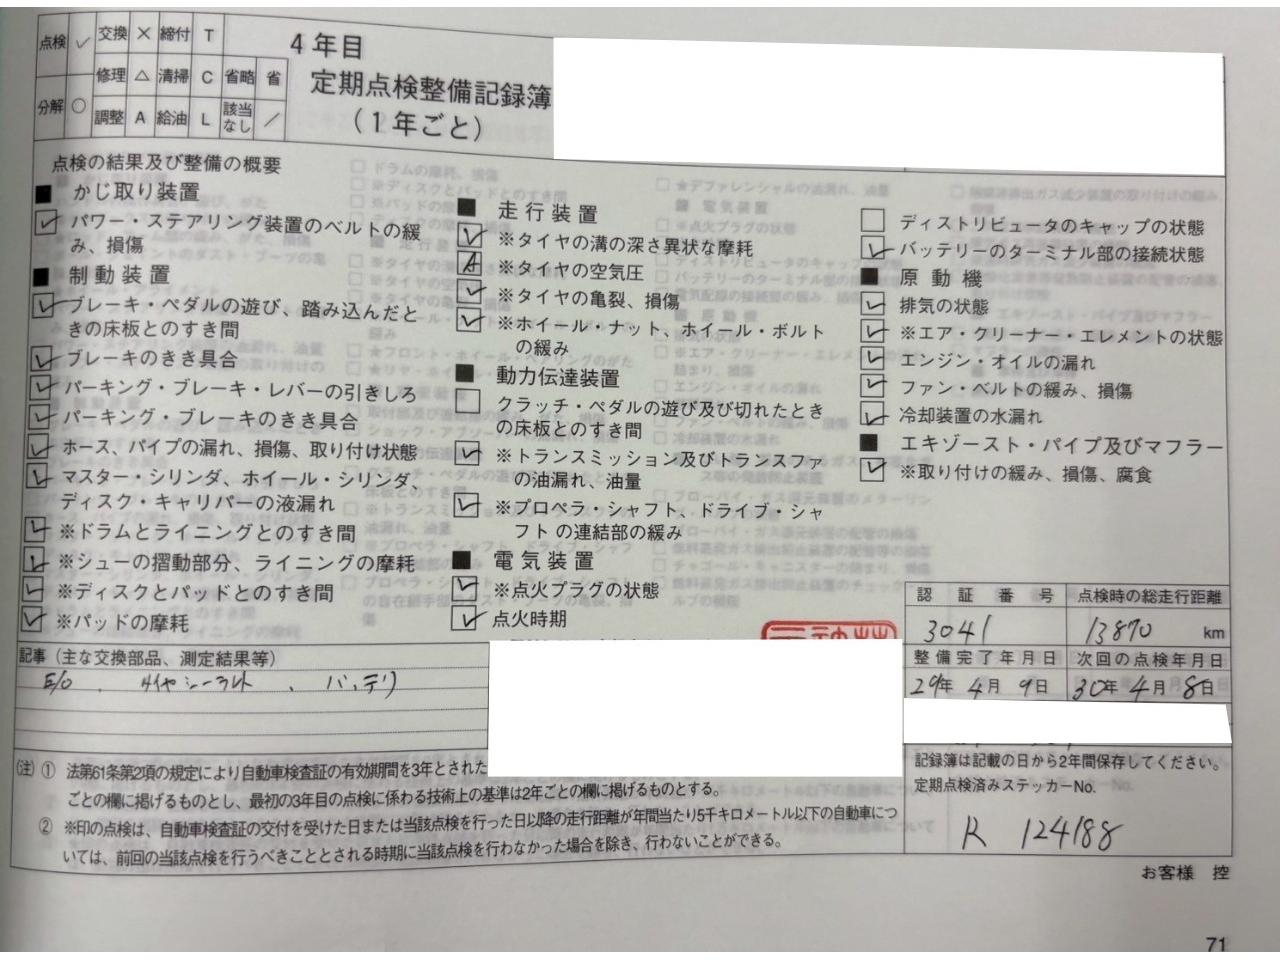 点検 ✓ 交換 × 締付 T
修理 △ 清掃 C 省略 省
分解 ○ 調整 A 給油 L 該当なし ／
4年目
定期点検整備記録簿
（1年ごと）
点検の結果及び整備の概要
■ かじ取り装置
パワー・ステアリング装置のベルトの緩
み、損傷
■ 制動装置
ブレーキ・ペダルの遊び、踏み込んだと
きの床板とのすき間
ブレーキのきき具合
パーキング・ブレーキ・レバーの引きしろ
パーキング・ブレーキのきき具合
ホース、パイプの漏れ、損傷、取り付け状態
マスター・シリンダ、ホイール・シリンダ、
ディスク・キャリパーの液漏れ
※ドラムとライニングとのすき間
※シューの摺動部分、ライニングの摩耗
※ディスクとパッドとのすき間
※パッドの摩耗
■ 走行装置
※タイヤの溝の深さ異状な摩耗
A ※タイヤの空気圧
※タイヤの亀裂、損傷
※ホイール・ナット、ホイール・ボルト
の緩み
■ 動力伝達装置
クラッチ・ペダルの遊び及び切れたとき
の床板とのすき間
※トランスミッション及びトランスファ
の油漏れ、油量
※プロペラ・シャフト、ドライブ・シャ
フトの連結部の緩み
■ 電気装置
※点火プラグの状態
点火時期
ディストリビュータのキャップの状態
バッテリーのターミナル部の接続状態
■ 原動機
排気の状態
※エア・クリーナー・エレメントの状態
エンジン・オイルの漏れ
ファン・ベルトの緩み、損傷
冷却装置の水漏れ
■ エキゾースト・パイプ及びマフラー
※取り付けの緩み、損傷、腐食
認証番号 点検時の総走行距離
3041 13870 km
整備完了年月日 次回の点検年月日
29年 4月 9日 30年 4月 8日
記事（主な交換部品、測定結果等）
E/O 、 、 バッテリ
(注) ① 法第61条第2項の規定により自動車検査証の有効期間を3年とされた
ごとの欄に掲げるものとし、最初の3年目の点検に係わる技術上の基準は2年ごとの欄に掲げるものとする。
② ※印の点検は、自動車検査証の交付を受けた日または当該点検を行った日以降の走行距離が年間当たり5千キロメートル以下の自動車につ
いては、前回の当該点検を行うべきこととされる時期に当該点検を行わなかった場合を除き、行わないことができる。
記録簿は記載の日から2年間保存してください。
定期点検済みステッカーNo.
R 124188
お客様 控
71